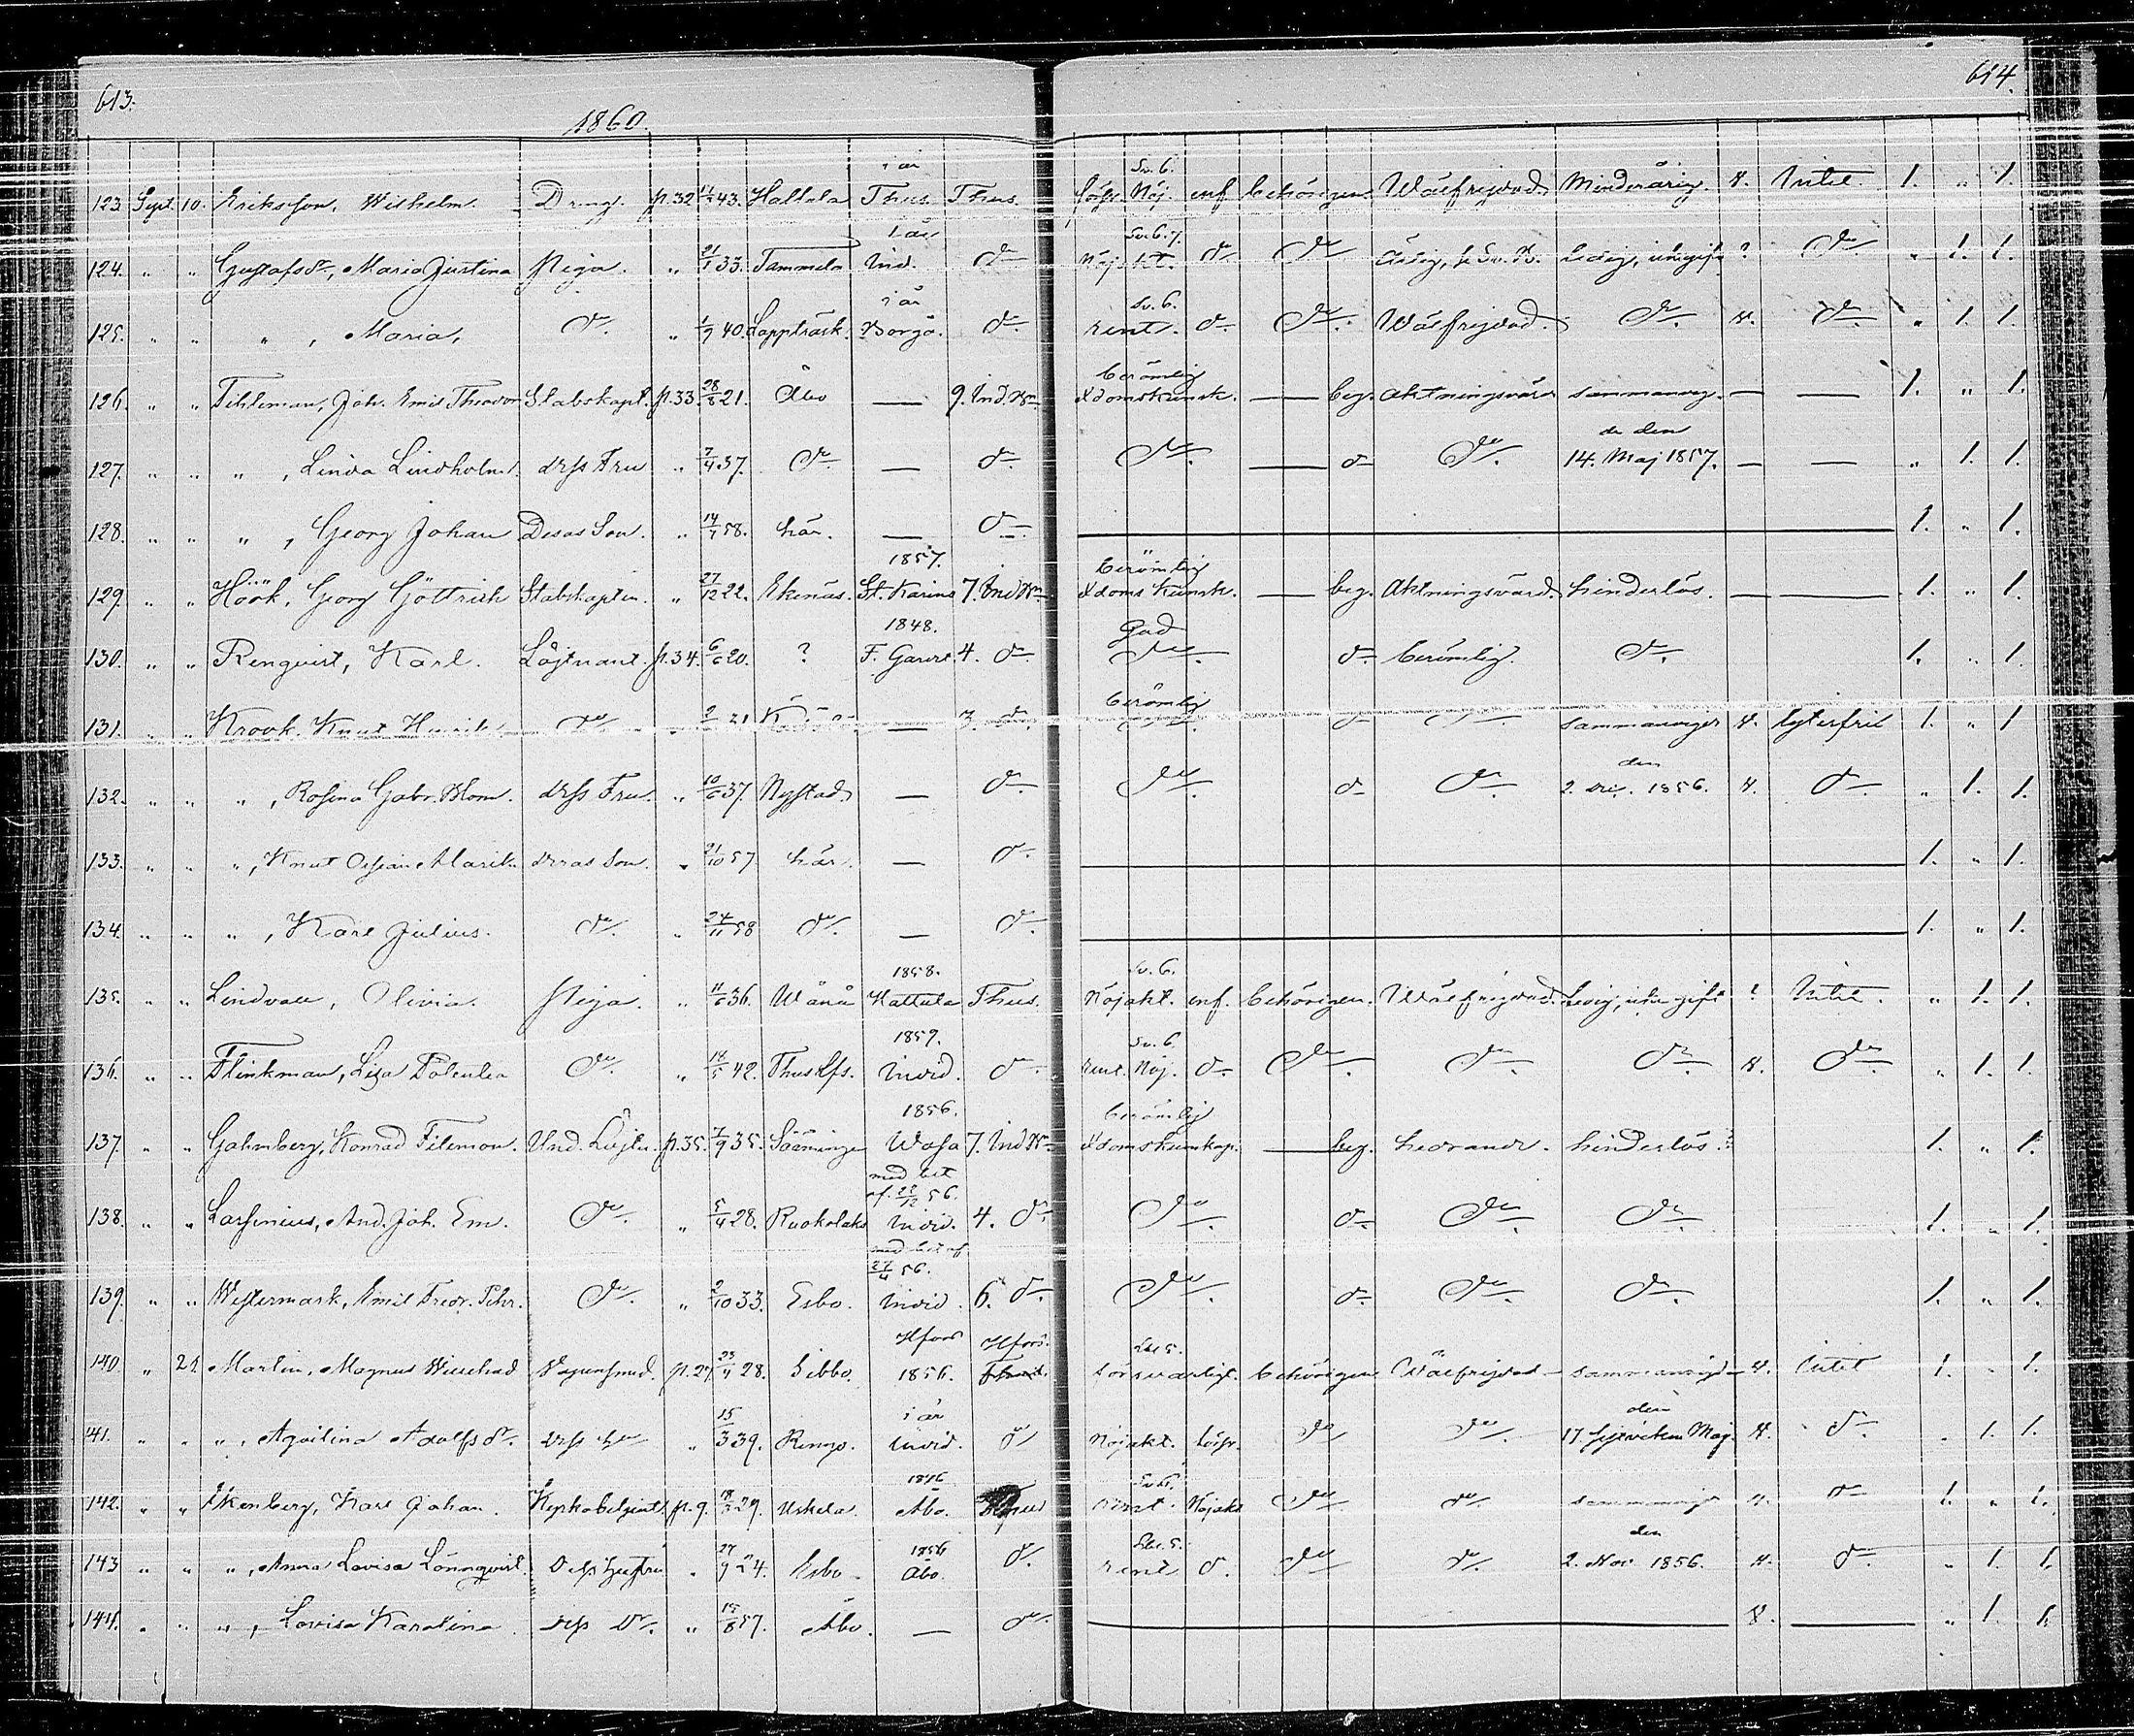 613.
614.
1860.
123. Sept. 10. Eriksson, Wilhelm. Dreng. p.32 43. Hattula i år Thus. Thus. Sv. 6. Nöj. inf. behörigen. Wälfrejdad. Minderårig. v. Intet. 1. " 1.
124. " " Gustafsdr, Maria Justina Piga. " 21/1 33. Tammela i år Ind. do Sv. 6. 7. Nöjakt. do do Ledig, ? do " 1. 1.
125. " " " , Maria, do " 1/9 40. Lappträsk. i år Borgå. do Sv. 6. rent. do do Wälfrejdad. do v. do " 1. 1.
126. " " Tihleman, Joh. Emil Theodor Stabskapt. p.33. 28/8 21. Åbo — 9. Ind. Bn berömlig Xdomskunsk. — beg. aktningsvärd sammanvig. — — 1. " 1.
127. " " " , Linda Lindholm. dess Fru " 7/4 37. do — do do — do do de den 14. Maj 1857. — — " 1. 1.
128. " " " , Georg Johan Desas Son. " 14/7 58. här. — do 1. " 1.
129. " " Höök, Georg Göttrich Stabskapten. " 27/12 22. Ekenäs. 1857. St. Karins 7. Ind Bn berömlig Xdoms Kunsk. — beg. Aktningsvärd. hinderlös. — — 1. " 1.
130. " " Renqvist, Karl. Löjtnant. p.34. 6/6 20. ? 1848. F. Gardet. 4. do God do do berömlig. do 1. " 1.
131. " " Krook, Knut Henrik do 21 — 3. do berömlig do do do sammanviger v. lyterfrit 1. " 1
132. " " " , Rosina Gabr. Blom. dess Fru. " 10/6 37. Nystad — do do do do den 2. Dec. 1856. v. do " 1. 1.
133. " " " , Knut Ossian Alarik. deras Son. " 21/10 57. här. — do 1. " 1.
134. " " " , Karl Julius. do " 24/11 58 do — do 1. " 1.
135. " " Lindvall, Olivia. Piga. " 11/6 36. Wånå 1858. Hattula Thus. Sv. 6. Nöjakt. inf. behörigen. Wälfrejdad. Ledig, icke gift ? Intet. " 1. 1.
136. " " Flinkman, Lisa do " 14/5 42. Thus Lfs. 1859. Invid. do Sv. 6. rent. Nöj. do do do do v. do " 1. 1.
137. " " Gahmberg, Konrad Filemon. Und. Löjtn. p.35. 7/9 35. Sääminge 1856. Wasa 7. Ind Bn berömlig Xdomskunskap. — beg. hedrande. hinderlös. 1. " 1.
138. " " Larsinius, And. Joh. Em. do " 5/4 28. Ruokolaks med bet. af. 56. Invid. 4. do do do do do 1. " 1.
139. " " Westermark, Emil Fredr. do " 2/10 33. Esbo. med bet af 56. Invid. 6. do do do do do 1. " 1.
140 " 21. Martin, Magnus p.27. 28. Sibbo. Hfors 1856. Hfors. försvarligt. behörigen Wälfrejdad sammanvigd v. intet 1. " 1.
141. " " " , Aqvilina Adolfsdr. dess 15/3 39. Rimgo. i år invid. do Nöjakt. do do den 17. sistvikne Maj. v. do " 1. 1.
142. " " Ekenberg, Karl Johan. p.9. 29. Uskela. Åbo. Sv. 6. rent. Nöjakt do do sammanvigd v. do 1. " 1.
143 " " " , Anna Lovisa Lönnqvist. Dess hustru " 24. Esbo 1856 Åbo. do rent do do do den 2. Nov. 1856. v. do " 1. 1.
144. " " " , Lovisa Karolina. dess Dr. " 57. Åbo. — do v. " 1. 1.